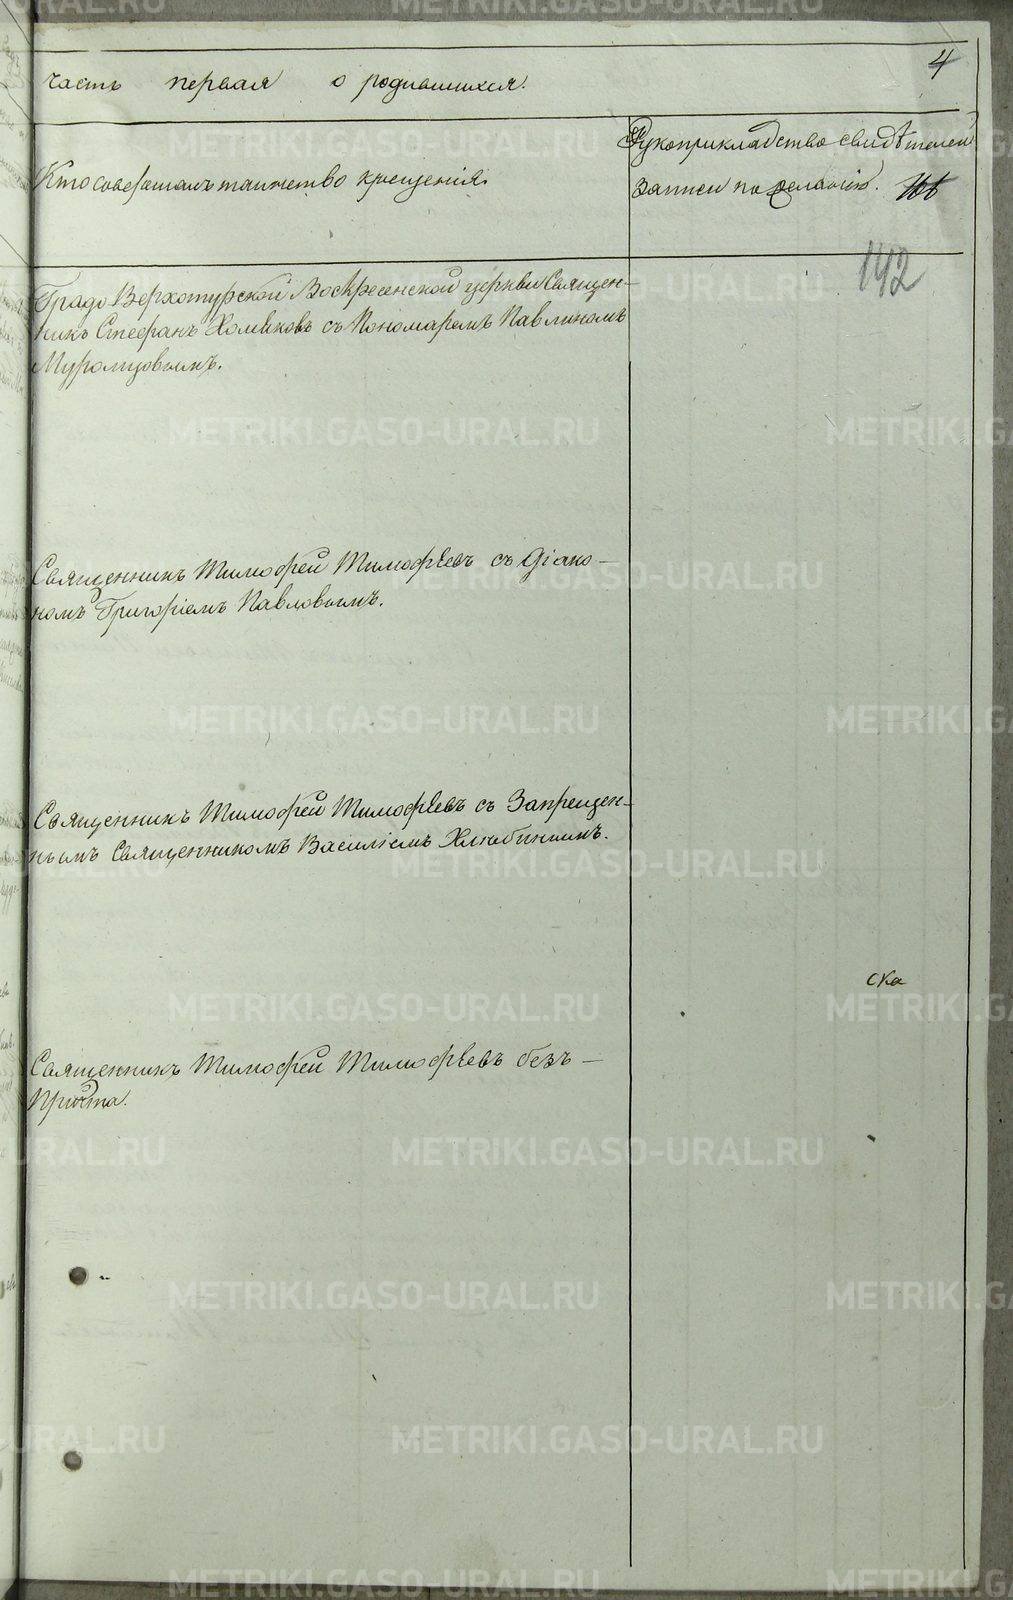 4
часть первая о родившихся.
Кто совершалъ таинство крещенія.
Рукоприкладство свидѣтелей
записи по желанію.
142
Градо Верхотурской Воскресенской церкви Священ-
никъ Стефанъ Хомяковъ съ Пономаремъ Павлиномъ
Священникъ Тимофей Тимофѣевъ съ Діако-
номъ Григоріемъ Павловымъ.
Священникъ Тимофей Тимофѣевъ съ Запрещен-
нымъ Священникомъ Василіемъ Хлюбинымъ.
ска
Священникъ Тимофей Тимофѣевъ безъ
Причта.
METRIKI.GASO-URAL.RU